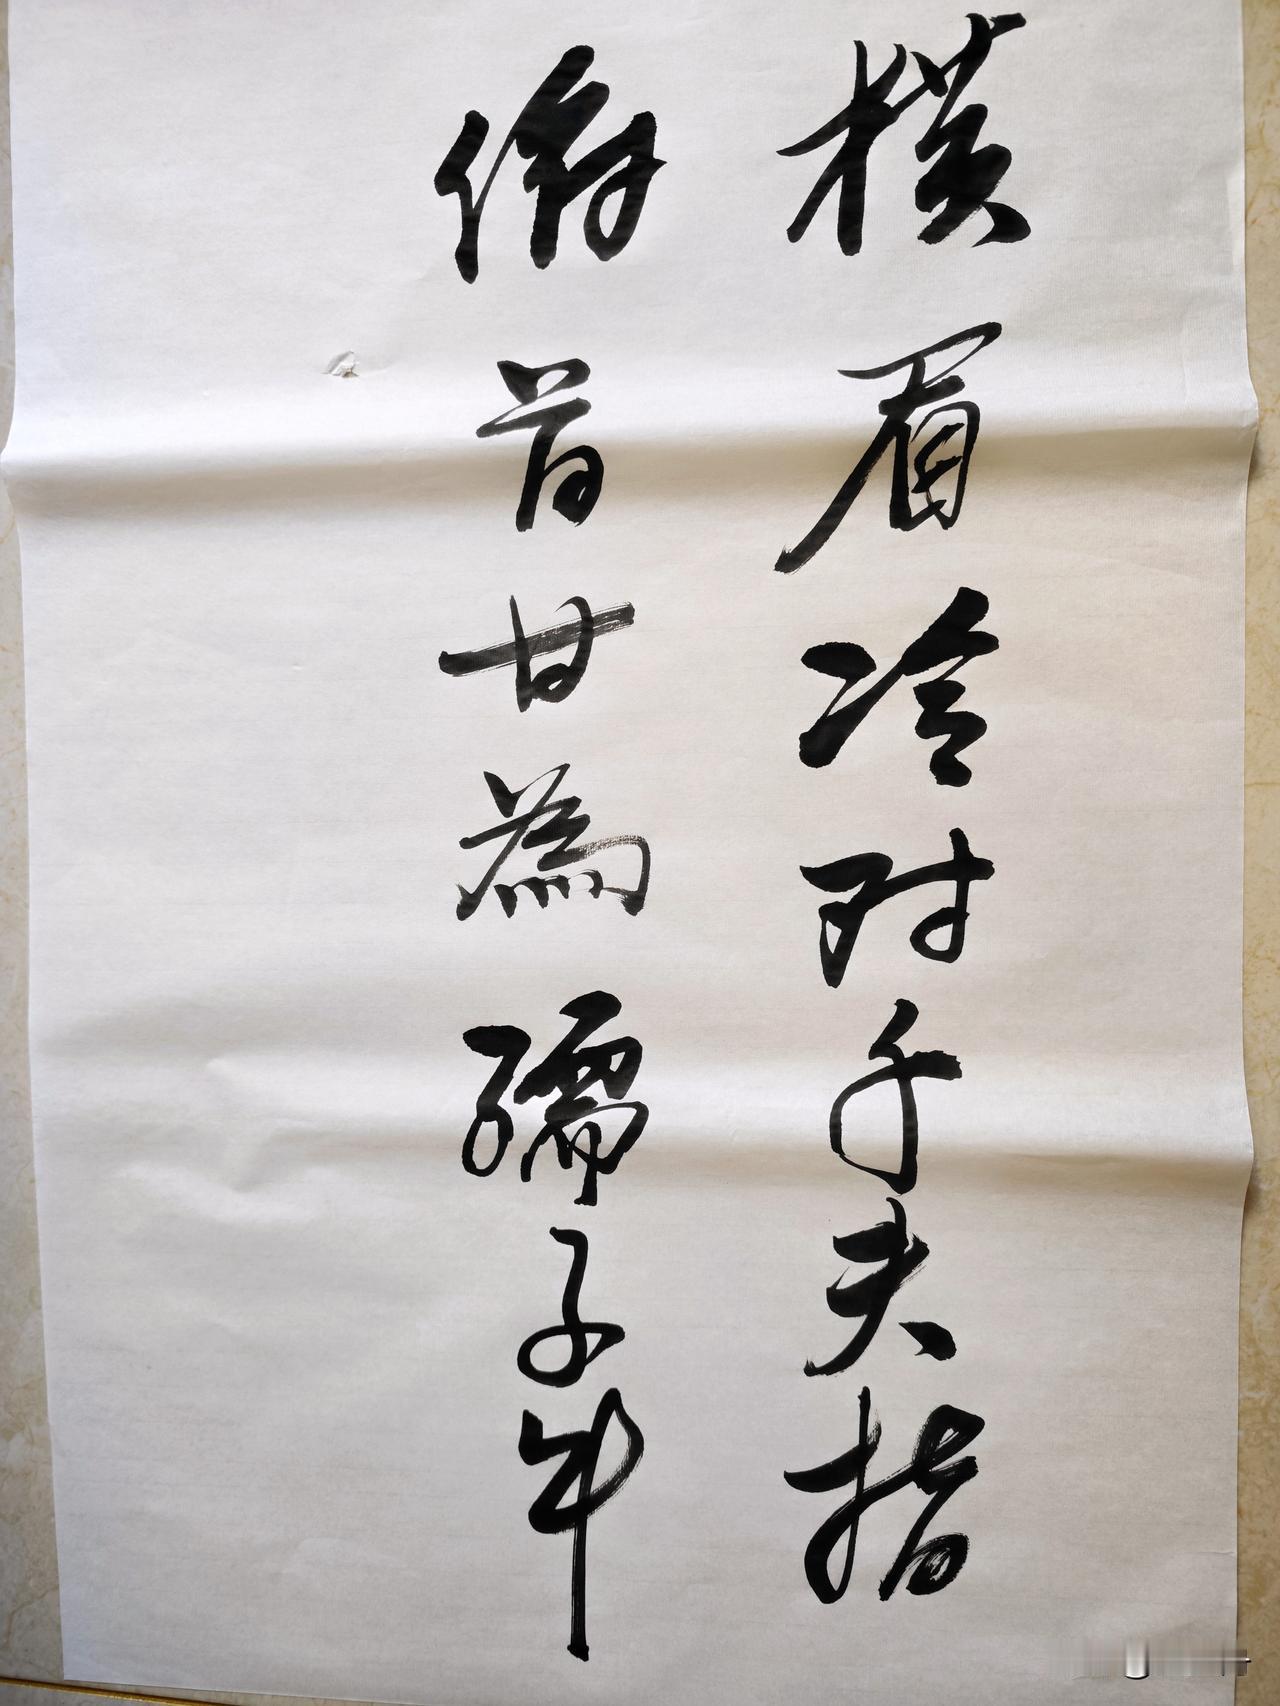 横眉冷对千夫指
俯首甘為孺子牛